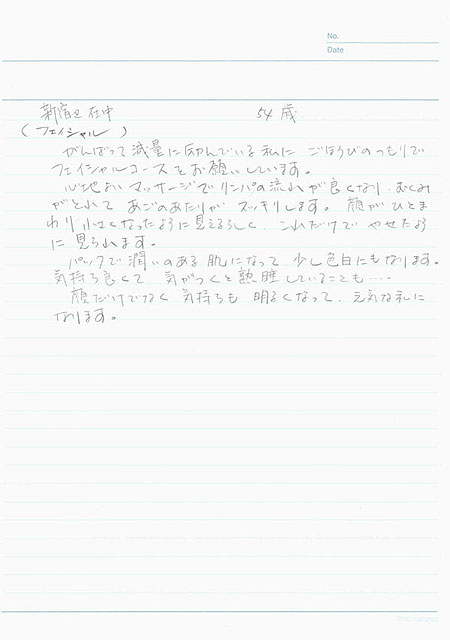 No.
Date
新宿区在中 54歳
(フェイシャル)
がんばって減量に励んでいる私に ごほうびのつもりで
フェイシャルコースをお願いしています。
心地よいマッサージでリンパの流れが良くなり、むくみ
がとれて あごのあたりが スッキリします。 顔がひとま
わり小さくなったように見えるらしく、これだけで やせたよう
に見られます。
パックで潤いのある肌になって、少し色白にもなります。
気持ち良くて 気がつくと熟睡していることも……
顔だけでなく 気持ちも 明るくなって、元気な私に
なります。